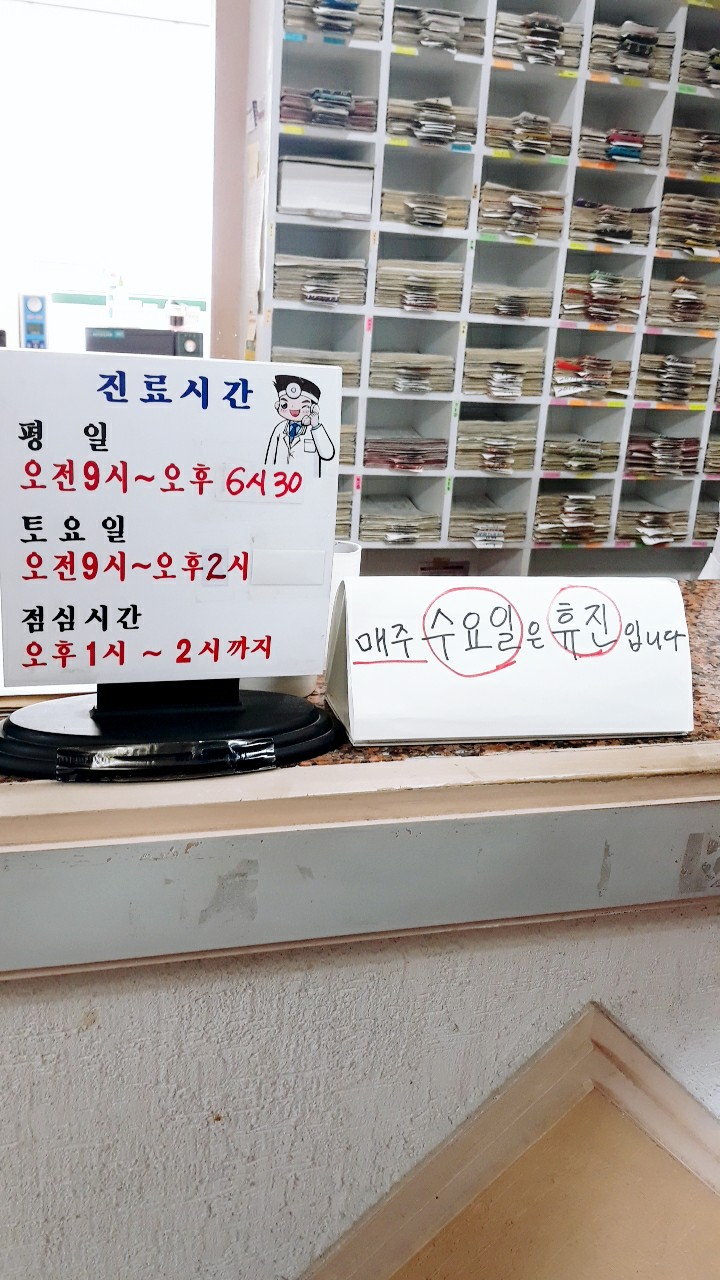 진료시간
평 일
오전9시~오후 6시30
토요일
오전9시~오후2시
점심시간
오후1시 ~ 2시까지
매주 수요일은 휴진입니다